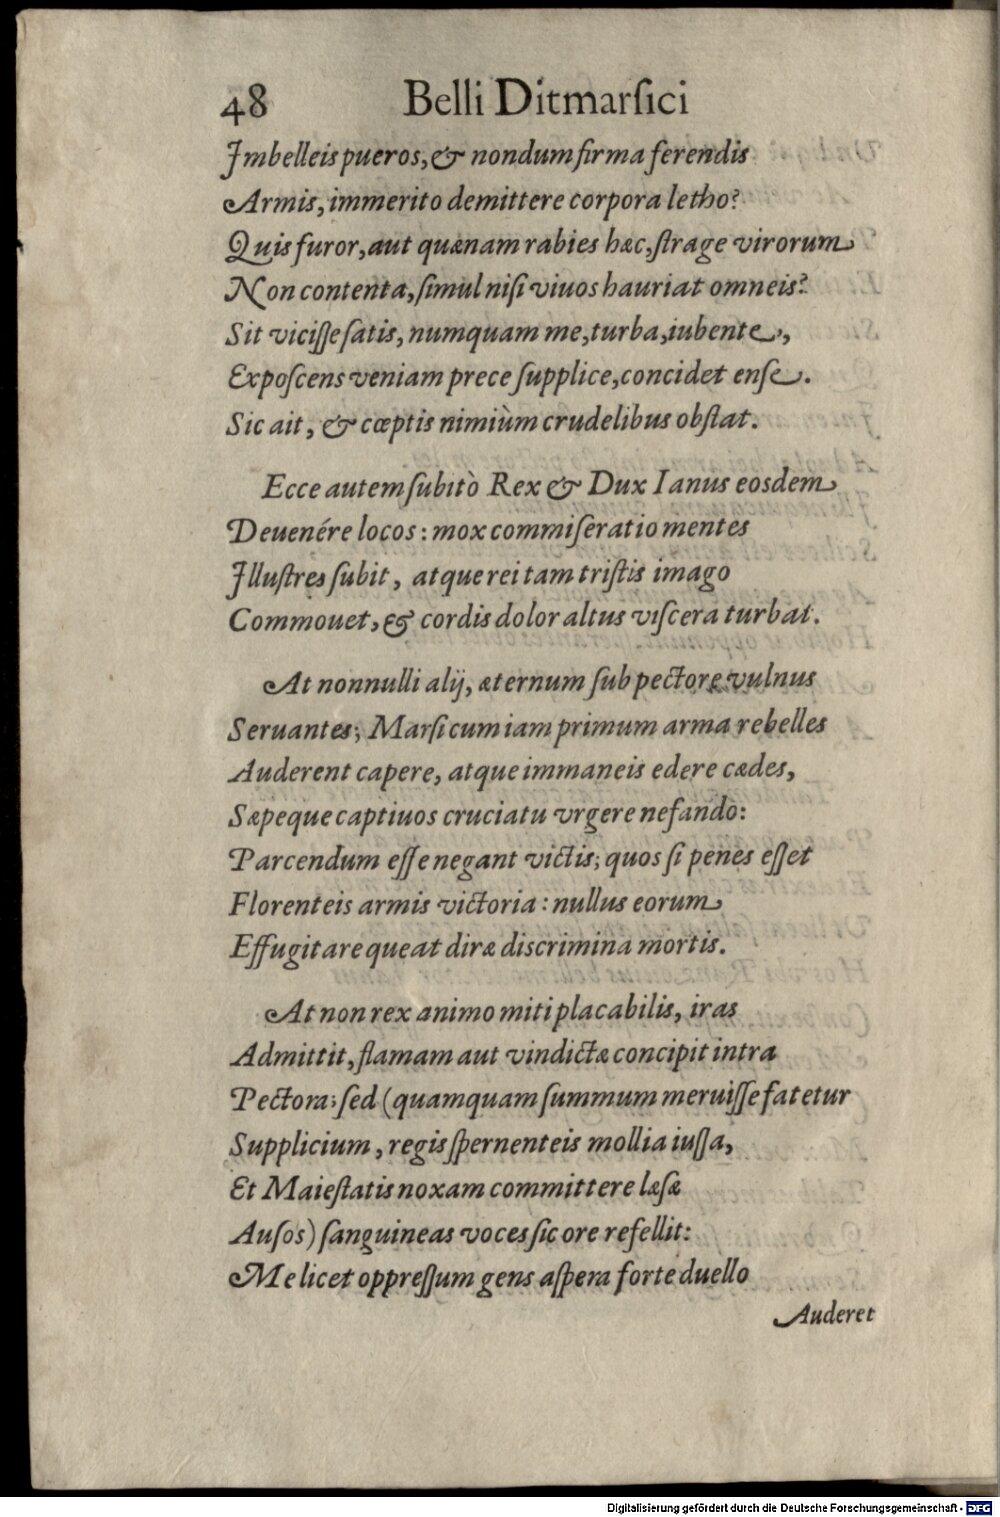 48 Belli Ditmarſici
Imbelleis pueros, & nondum firma ferendis
Armis, immerito demittere corpora letho?
Quis furor, aut quænam rabies hæc, ſtrage virorum
Non contenta, ſimul niſi viuos hauriat omneis?
Sit viciſſe ſatis, numquam me, turba, iubente,
Expoſcens veniam prece ſupplice, concidet enſe.
Sic ait, & cœptis nimiùm crudelibus obſtat.
Ecce autem ſubitò Rex & Dux Ianus eosdem
Deuenére locos: mox commiſeratio mentes
Illuſtres ſubit, atque rei tam triſtis imago
Commouet, & cordis dolor altus viſcera turbat.
At nonnulli alij, æternum ſub pectore vulnus
Seruantes; Marſi cum iam primum arma rebelles
Auderent capere, atque immaneis edere cædes,
Sæpeque captiuos cruciatu vrgere nefando:
Parcendum eſſe negant victis; quos ſi penes eſſet
Florenteis armis victoria: nullus eorum
Effugitare queat diræ discrimina mortis.
At non rex animo miti placabilis, iras
Admittit, flamam aut vindictæ concipit intra
Pectora; ſed (quamquam ſummum meruiſſe fatetur
Supplicium, regis ſpernenteis mollia iuſſa,
Et Maieſtatis noxam committere læſæ
Auſos) ſanguineas voces ſic ore refellit:
Me licet oppreſſum gens aſpera forte duello
Auderet
Digitalisierung gefördert durch die Deutsche Forschungsgemeinschaft - DFG